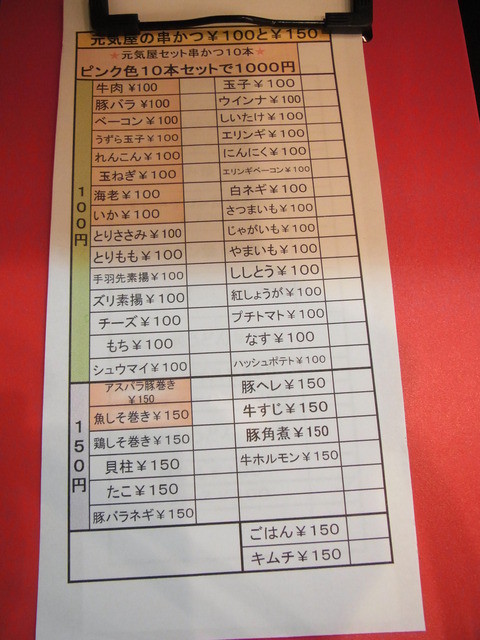 元気屋の串かつ￥100と￥150
★元気屋セット串かつ10本★
ピンク色10本セットで1000円
100円
牛肉￥100 玉子￥100
豚バラ￥100 ウインナ￥100
ベーコン￥100 しいたけ￥100
うずら玉子￥100 エリンギ￥100
れんこん￥100 にんにく￥100
玉ねぎ￥100 エリンギベーコン￥100
海老￥100 白ネギ￥100
いか￥100 さつまいも￥100
とりささみ￥100 じゃがいも￥100
とりもも￥100 やまいも￥100
手羽先素揚￥100 ししとう￥100
ズリ素揚￥100 紅しょうが￥100
チーズ￥100 プチトマト￥100
もち￥100 なす￥100
シュウマイ￥100 ハッシュポテト￥100
150円
アスパラ豚巻き
￥150 豚ヘレ￥150
魚しそ巻き￥150 牛すじ￥150
鶏しそ巻き￥150 豚角煮￥150
貝柱￥150 牛ホルモン￥150
たこ￥150
豚バラネギ￥150
ごはん￥150
キムチ￥150